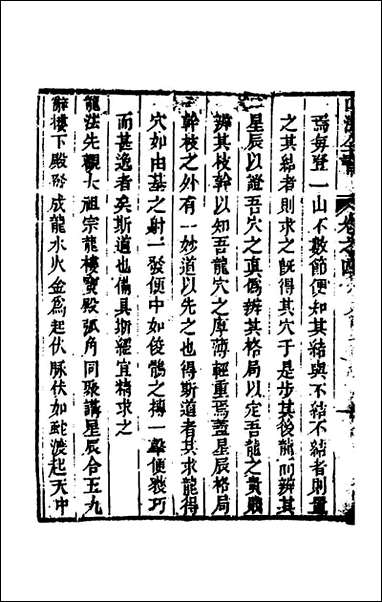 焉每登一山不數節便知其結與不結不結者則置
之其結者則求之旣得其穴于是步其後龍而辨其
星辰以證吾穴之眞僞辨其格局以定吾龍之貴賤
辨其枝幹以知吾龍穴之厚薄輕重焉蓋星辰格局
幹枝之外有一妙道以先之也得斯道者其求龍得
穴如由基之射一發便中如俊鶻之搏一擊便獲巧
而甚逸者矣斯道也備具斯經宜精求之
龍法先觀大祖宗龍樓寶殿弧角同聚講星辰合五九
辭樓下殿 成龍水火金爲起伏脉伏如 渡起天中